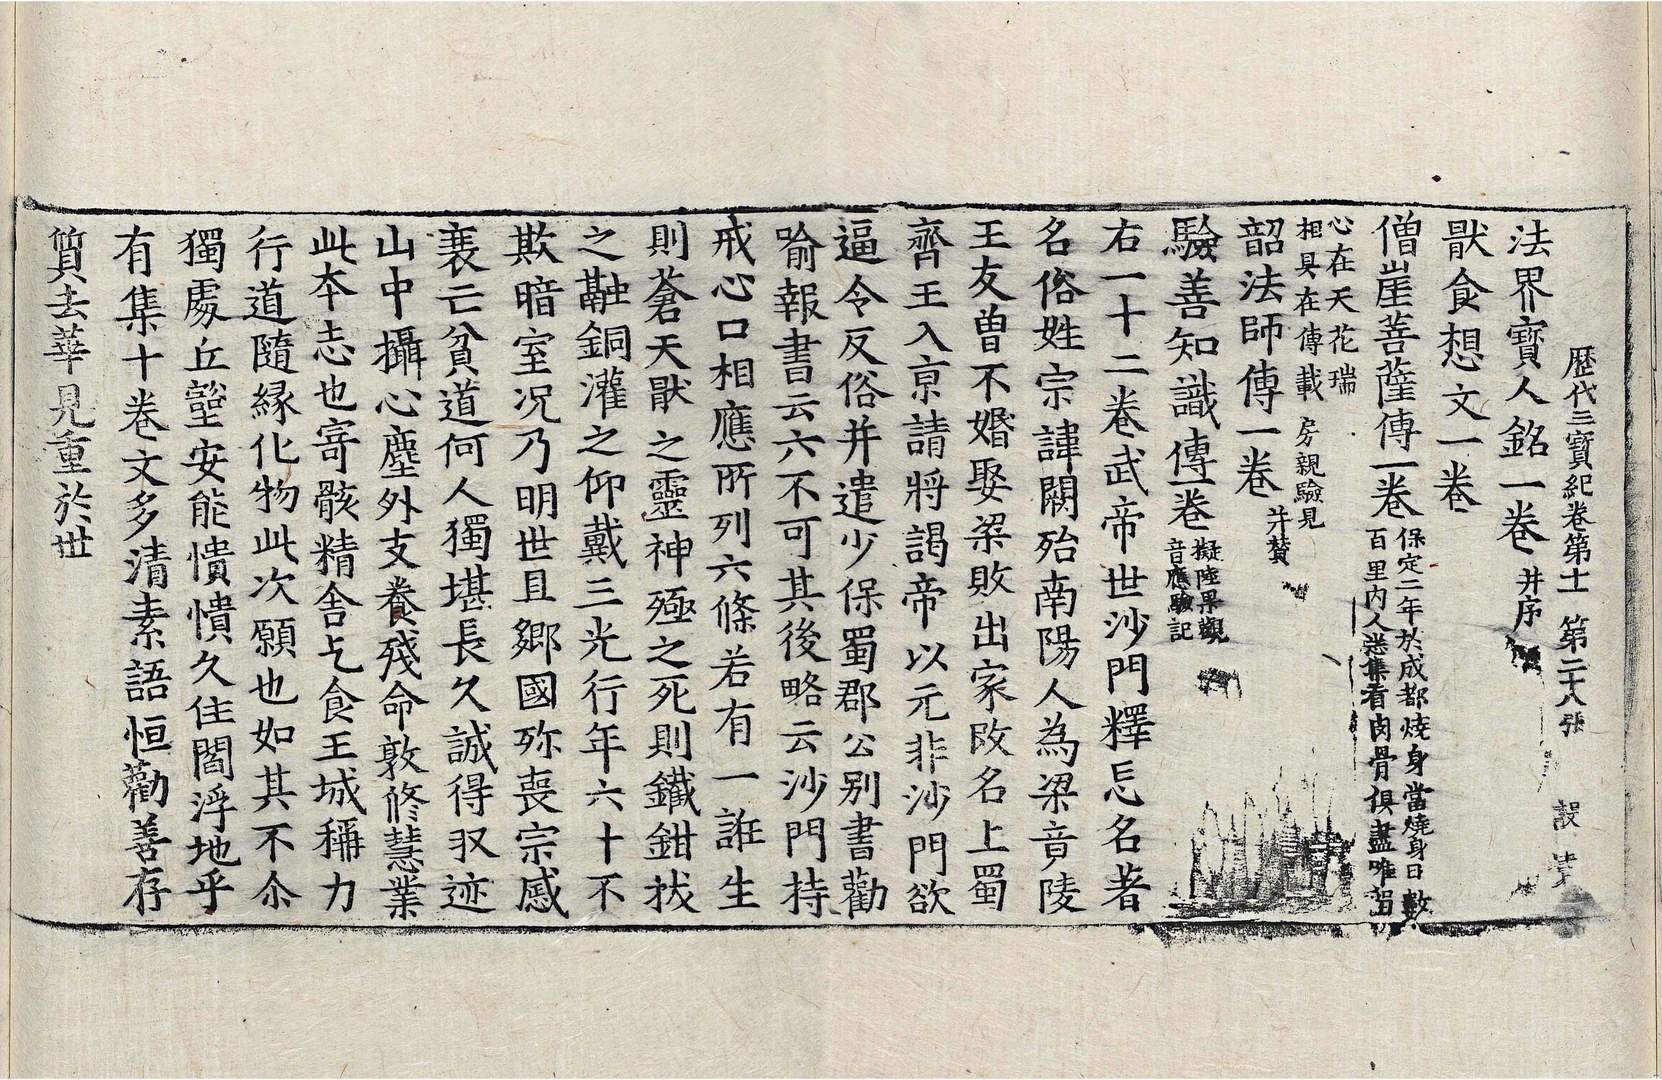 歷代三寳紀卷第十一 第二十八張
法界寳人銘一卷 并序
猒食想文一卷
僧崖菩薩傳一卷 保定二年於成都燒身當燒身日數
百里內人悉集看肉骨俱盡唯留
心在天花瑞
相具在傳載 房親驗見
韶法師傳一卷 并賛
驗善知識傳一卷 擬陸杲觀
音應驗記
右一十二卷武帝世沙門釋忘名著
名俗姓宗諱闕殆南陽人為梁竟陵
王友曽不婚娶梁敗出家改名上蜀
齊王入京請將謁帝以元非沙門欲
逼令反俗并遣少保蜀郡公别書勸
喻報書云六不可其後略云沙門持
戒心口相應所列六條若有一誑生
則蒼天猒之靈神殛之死則鐵鉗拔
之融銅灌之仰戴三光行年六十不
欺暗室况乃明世且鄉國殄喪宗戚
衰亡貧道何人獨堪長久誠得収迹
山中攝心塵外支養殘命敦修慧業
此本志也寄骸精舍乞食王城稱力
行道隨緣化物此次願也如其不尒
獨處丘壑安能憒憒久住閻浮地乎
有集十卷文多清素語恒勸善存
質去華見重於世